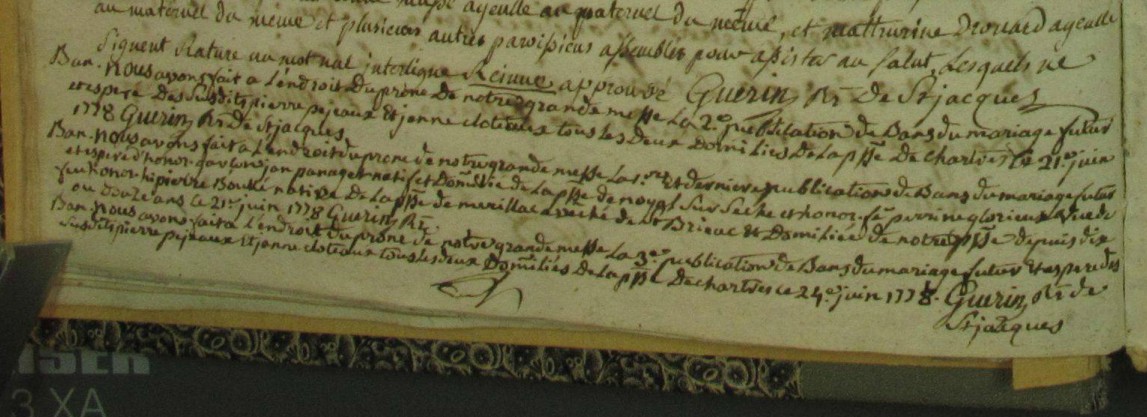 ayeulle au paternel du même, et matturine Drouard ayeulle
au maternel du même et plusieurs autres paroissiens assemblés pour assister au salut Lesquels ne
signent Rature un mot nul interligne Reinne approuvé Guerin Rr De St jacques
Ban. nous avons fait a L'endroit du prône De notre grande messe La 2e publication de Bans du mariage futur
et espere Des Susdits pierre pejeaux & jenne cloteaux tous les deux Domiliés De La psse De chartres le 21e juin
1778 Guerin Rr De St jacques
Ban. nous avons fait a L'endroit du prone de notre grande messe La 1re et derniere publication de Bans du mariage futur
et espere d'honor. garçon jan panaget natif et Domilié de La psse de noyal Sur Seche et honor. fe perrinne glorieux
feu honor. h. pierre natve de La psse de merillac eveché de St Brieuc et Domiliée de notre psse depuis dix
ou douze ans le 21e juin 1778 Guerin Rr
Ban. nous avons fait a L'endroit du prone de notre grande messe La 3e publication de Bans du mariage futur et espere des
Susdits pierre pejeaux et jenne cloteaux tous les deux Domiliés de La psse De chartres ce 24e juin 1778. Guerin Rr de
St jacques
3 XA